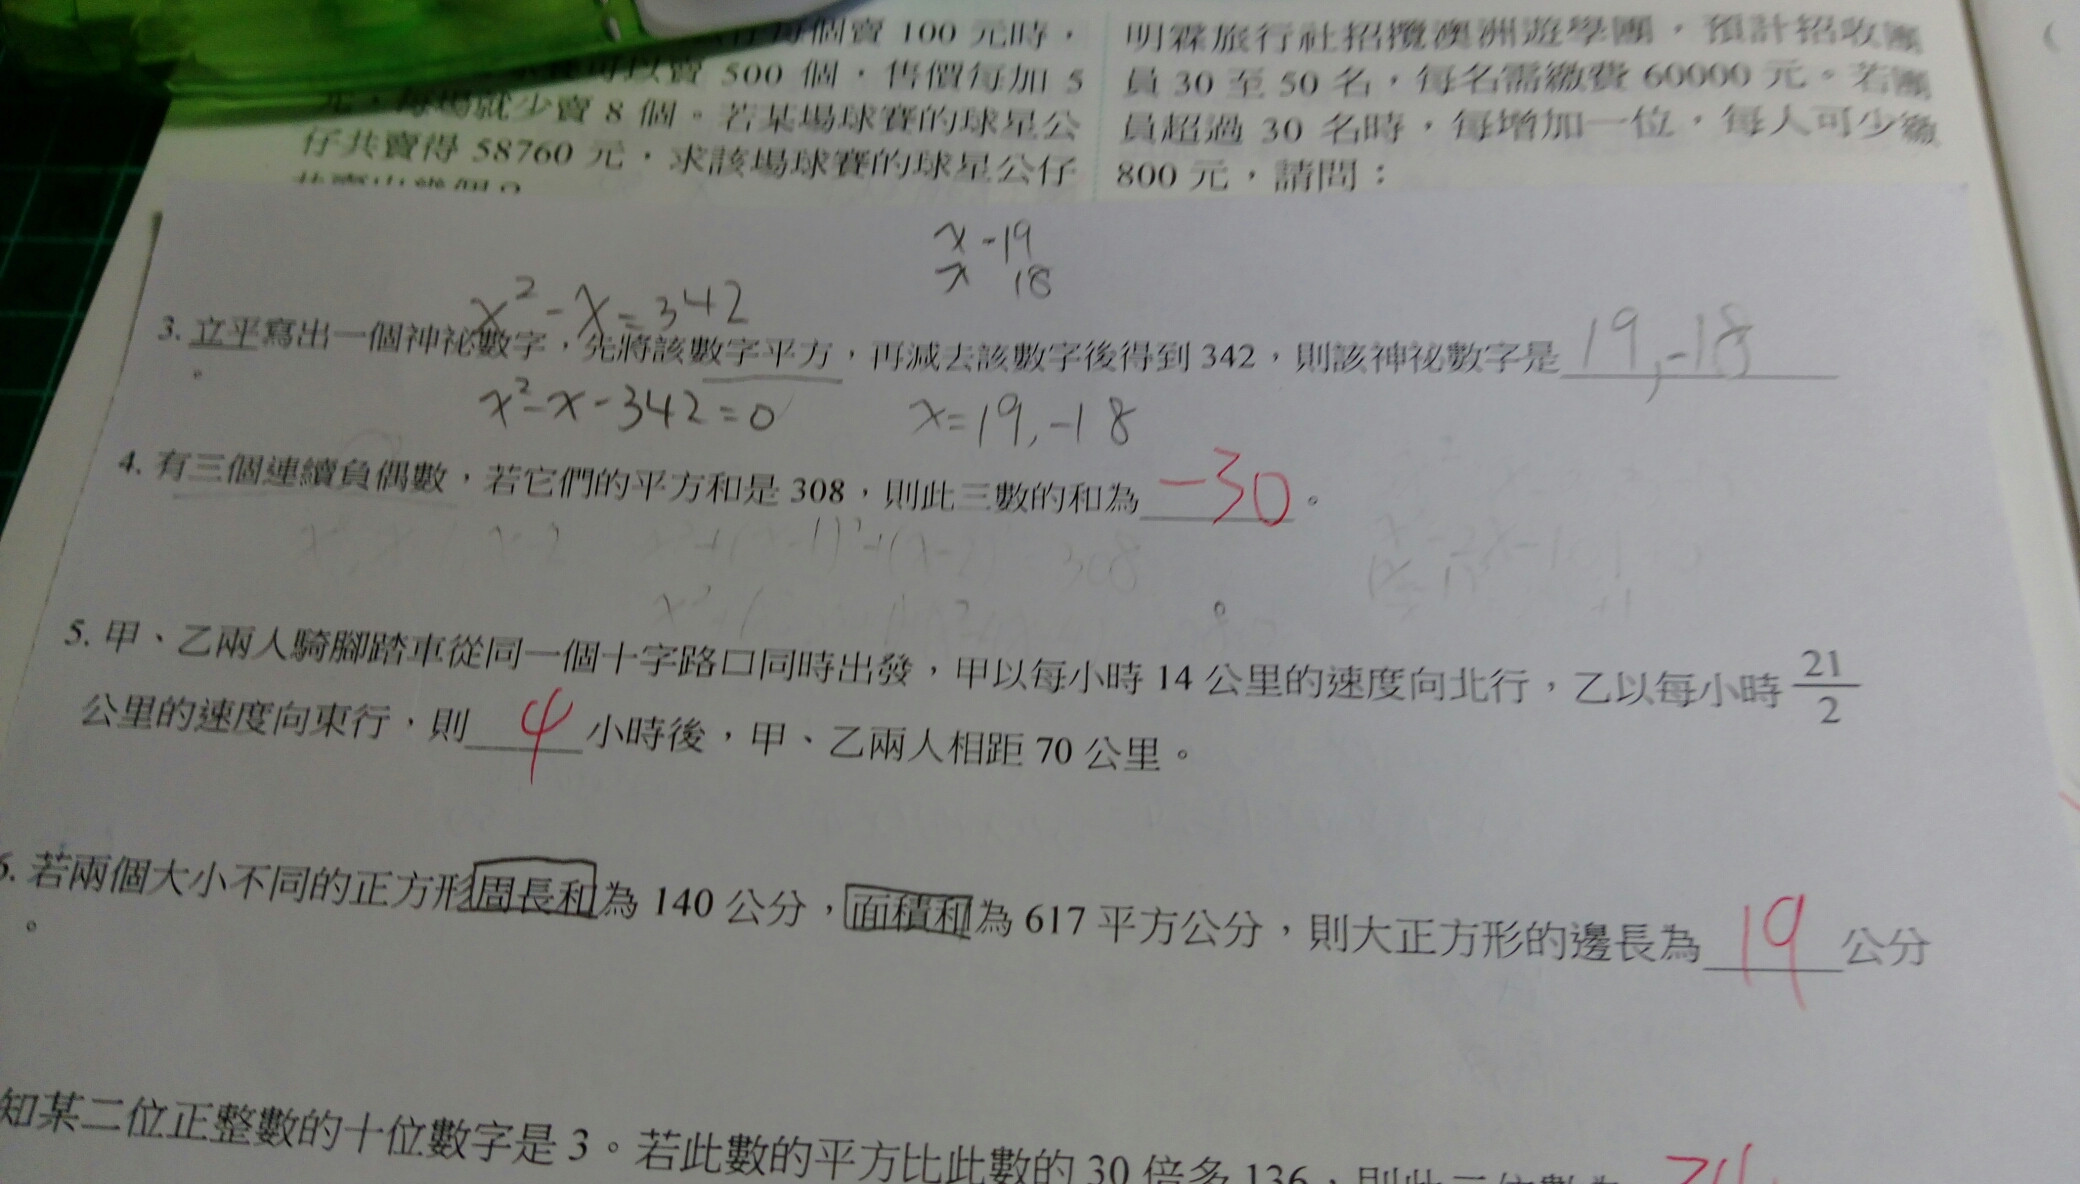 個賣 100 元時，
可以賣 500 個，售價每加 5
元，每場就少賣 8 個。若某場球賽的球星公
仔共賣得 58760 元，求該場球賽的球星公仔
共賣出幾個？
明霖旅行社招攬澳洲遊學團，預計招收團
員 30 至 50 名，每名需繳費 60000 元。若團
員超過 30 名時，每增加一位，每人可少繳
800 元，請問：
x -19
x 18
x²-x=342
3. 立平寫出一個神祕數字，先將該數字平方，再減去該數字後得到 342，則該神祕數字是 19,-18
。
x²-x-342=0 x=19,-18
4. 有三個連續負偶數，若它們的平方和是 308，則此三數的和為 -30 。
5. 甲、乙兩人騎腳踏車從同一個十字路口同時出發，甲以每小時 14 公里的速度向北行，乙以每小時 21/2
公里的速度向東行，則 4 小時後，甲、乙兩人相距 70 公里。
6. 若兩個大小不同的正方形周長和為 140 公分，面積和為 617 平方公分，則大正方形的邊長為 19 公分
。
知某二位正整數的十位數字是 3。若此數的平方比此數的 30 倍多 136，則此二位數為 34